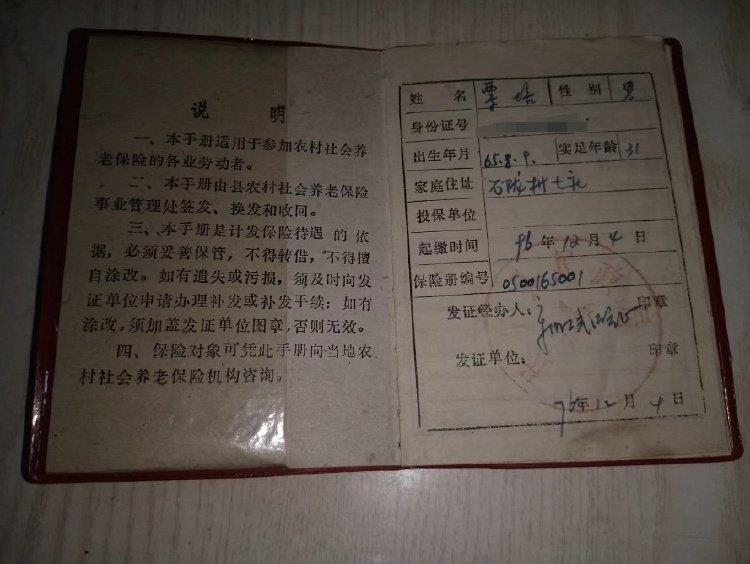 说 明
一、本手册适用于参加农村社会养
老保险的各业劳动者。
二、本手册由县农村社会养老保险
事业管理处签发、换发和收回。
三、本手册是计发保险待遇的依
据，必须妥善保管，不得转借，不得擅
自涂改。如有遗失或污损，须及时向发
证单位申请办理补发或补发手续；如有
涂改，须加盖发证单位图章，否则无效。
四、保险对象可凭此手册向当地农
村社会养老保险机构咨询。
姓 名 性 别 男
身份证号
出生年月 65.8.9. 实足年龄 31
家庭住址
投保单位
起缴时间 96年12月4日
保险册编号 0500165001
发证经办人： 印章
发证单位： 印章
96年12月4日